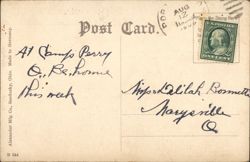 Post Card.
AUG
12
At Camp Perry
O., Be home
this week
Miss Delilah
Marysville
O
Alexander Mfg. Co., Sandusky, Ohio. Made in Germany.